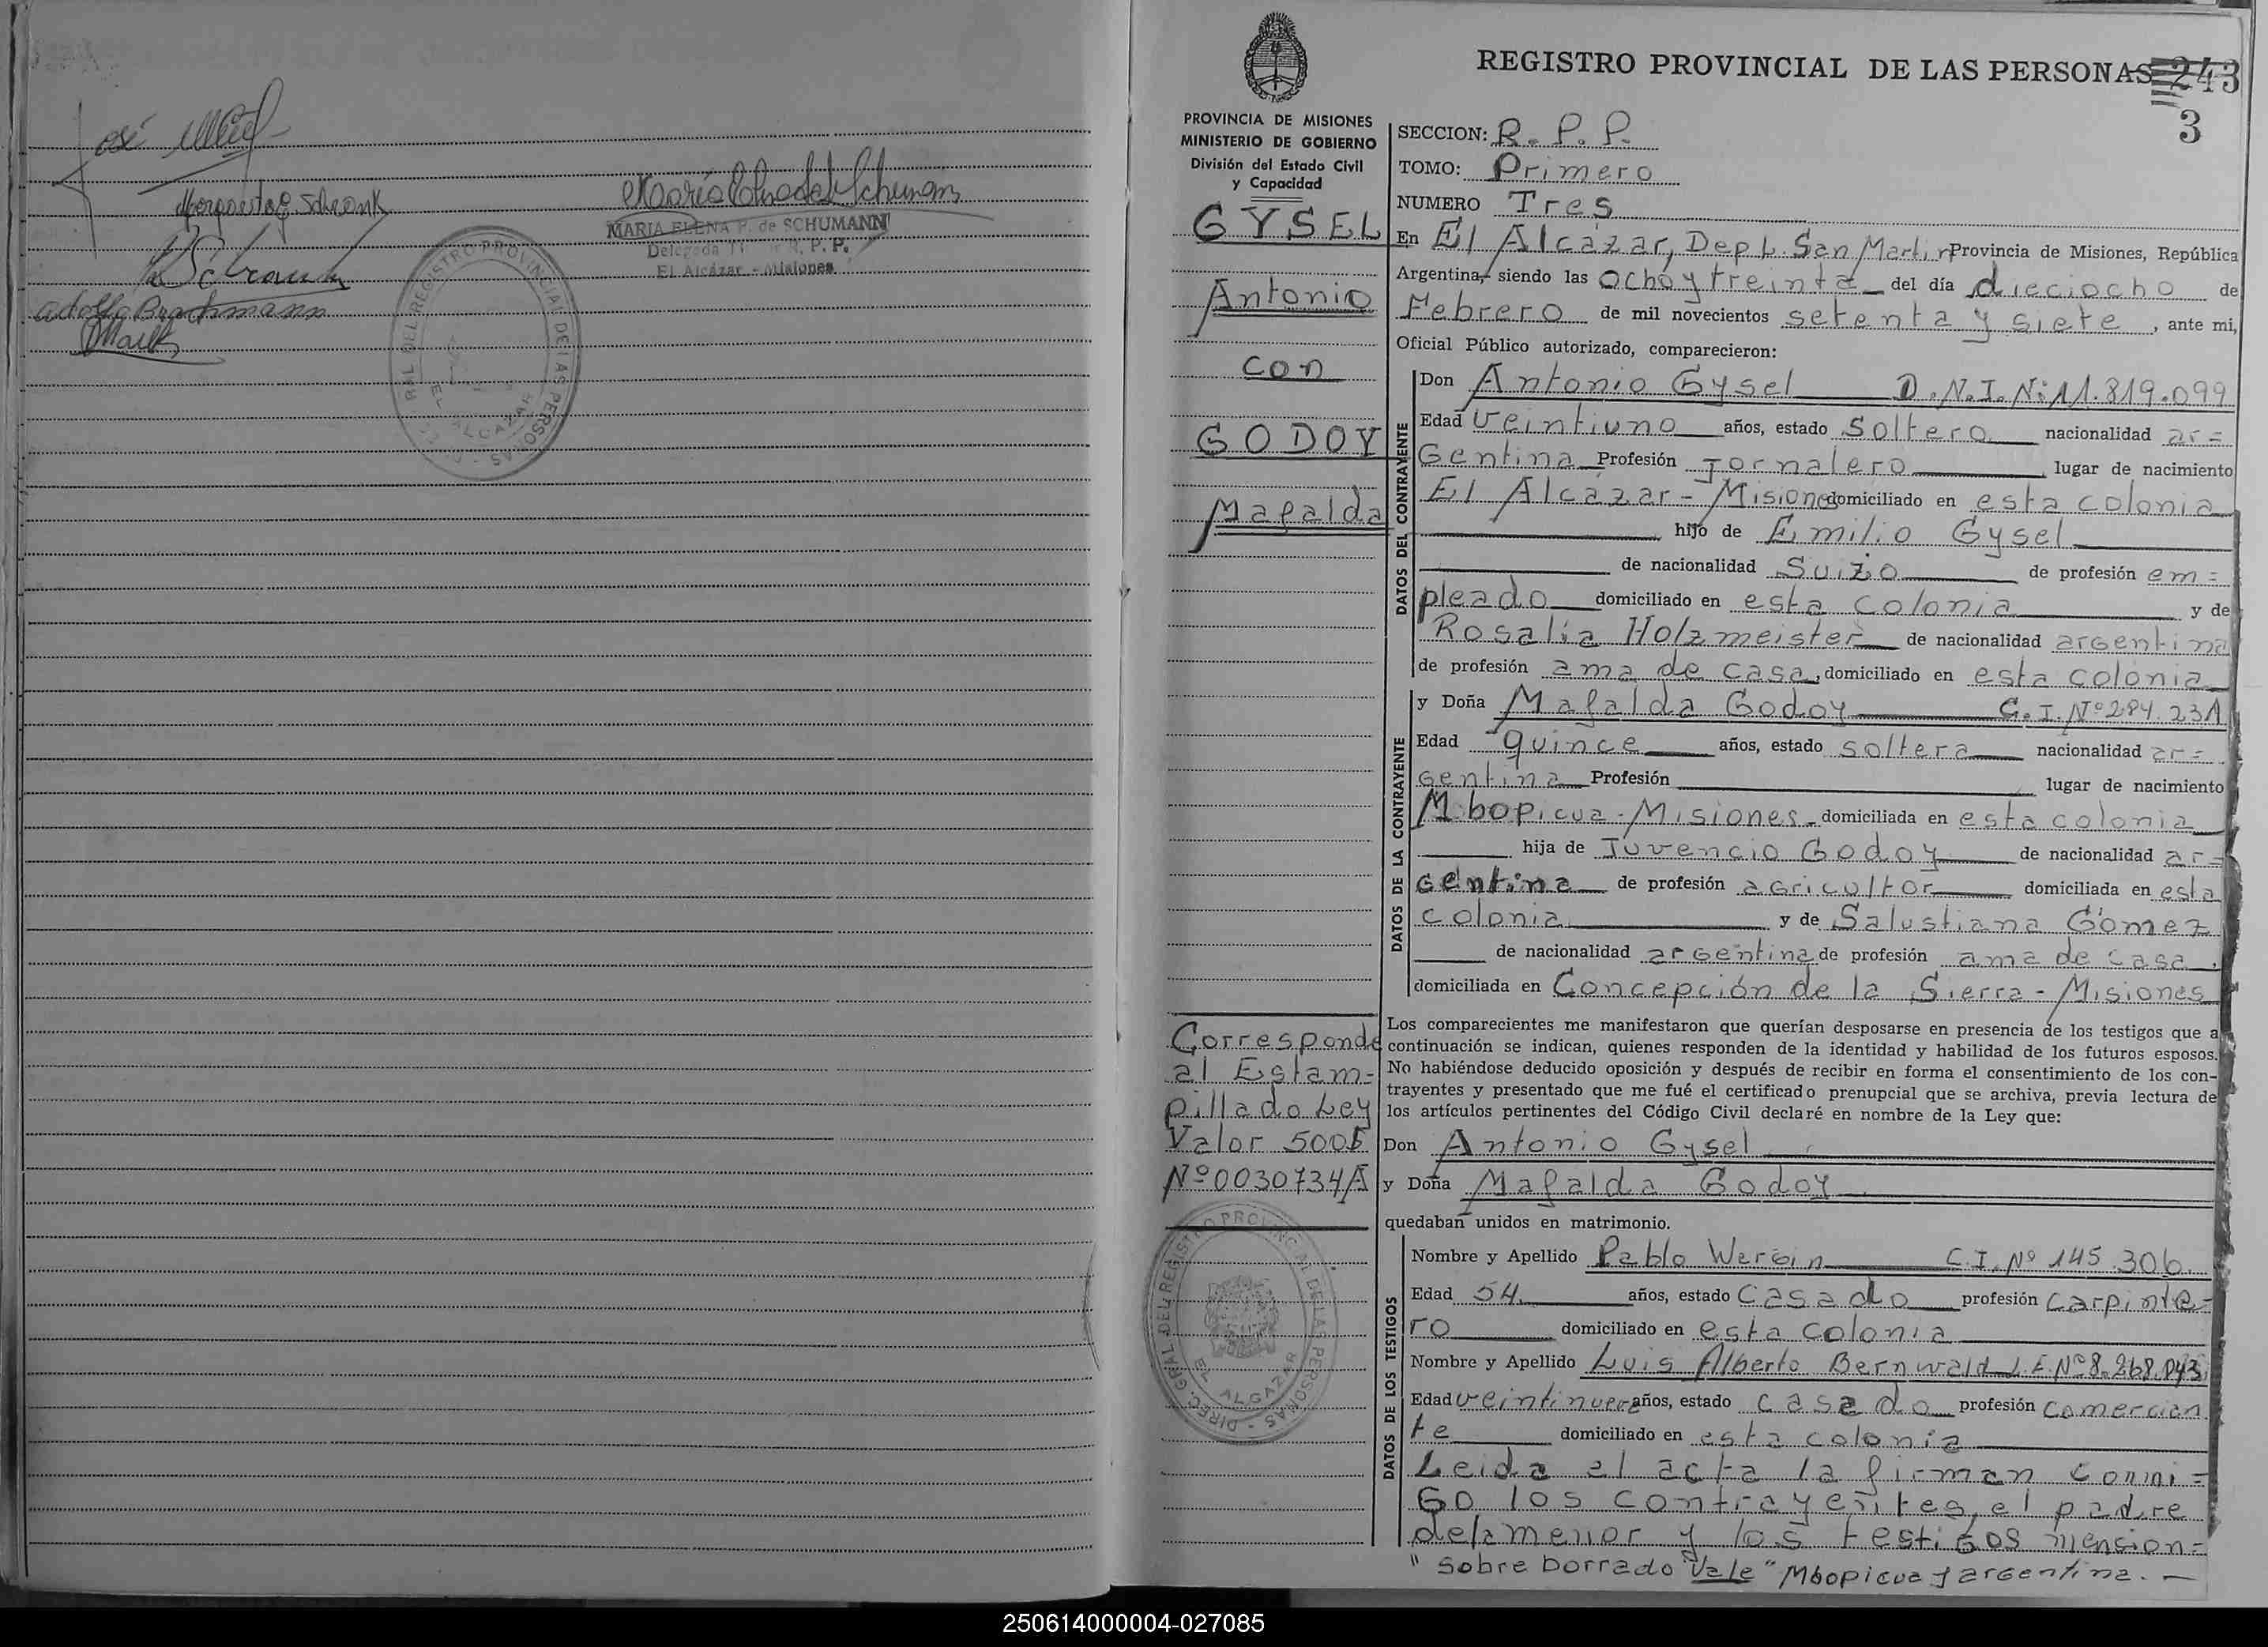 José
Margarita G Schronk
María Elena P de Schumann
MARIA ELENA P. de SCHUMANN
R. P. P.
EL Alcázar - Misiones
Adolfo Brachmann
REGISTRO PROVINCIAL DE LAS PERSONAS
EL ALCAZAR
REGISTRO PROVINCIAL DE LAS PERSONAS 243
3
PROVINCIA DE MISIONES
MINISTERIO DE GOBIERNO
División del Estado Civil
y Capacidad
GYSEL
Antonio
con
GODOY
Mafalda
Corresponde
al Estam-
pillado Ley
Valor 500$
Nº 0030734A
DIREC. GRAL DEL REGISTRO PROVINCIAL DE LAS PERSONAS
EL ALCAZAR
SECCION: R. P. P.
TOMO: Primero
NUMERO Tres
En El Alcázar, Dept. San Martin Provincia de Misiones, República
Argentina, siendo las ocho y treinta del día dieciocho de
Febrero de mil novecientos setenta y siete, ante mi,
Oficial Público autorizado, comparecieron:
DATOS DEL CONTRAYENTE
Don Antonio Gysel D.N.I. Nº 11.819.099
Edad veintiuno años, estado soltero nacionalidad ar=
gentina Profesión Jornalero lugar de nacimiento
El Alcázar - Misiones domiciliado en esta colonia
hijo de Emilio Gysel
de nacionalidad Suizo de profesión em=
pleado domiciliado en esta colonia y de
Rosalia Holzmeister de nacionalidad argentina
de profesión ama de casa, domiciliado en esta colonia
DATOS DE LA CONTRAYENTE
y Doña Mafalda Godoy C.I. Nº 284.231
Edad quince años, estado soltera nacionalidad ar=
gentina Profesión lugar de nacimiento
Mbopicua - Misiones domiciliada en esta colonia
hija de Juvencio Godoy de nacionalidad ar=
gentina de profesión agricultor domiciliada en esta
colonia y de Salustiana Gómez
de nacionalidad argentina de profesión ama de casa,
domiciliada en Concepción de la Sierra - Misiones
Los comparecientes me manifestaron que querían desposarse en presencia de los testigos que a
continuación se indican, quienes responden de la identidad y habilidad de los futuros esposos.
No habiéndose deducido oposición y después de recibir en forma el consentimiento de los con-
trayentes y presentado que me fué el certificado prenupcial que se archiva, previa lectura de
los artículos pertinentes del Código Civil declaré en nombre de la Ley que:
Don Antonio Gysel
y Doña Mafalda Godoy
quedaban unidos en matrimonio.
DATOS DE LOS TESTIGOS
Nombre y Apellido Pablo Wergin C.I. Nº 145.306
Edad 54 años, estado casado profesión carpinte-
ro domiciliado en esta colonia
Nombre y Apellido Luis Alberto Bernwald L.E. Nº 8.268.043
Edad veintinueve años, estado casado profesión comercian
te domiciliado en esta colonia
Leida el acta la firman conmi=
go los contrayentes, el padre
de la menor y los testigos mension=
"Sobre borrado Vale" Mbopicua y argentina. -
250614000004-027085